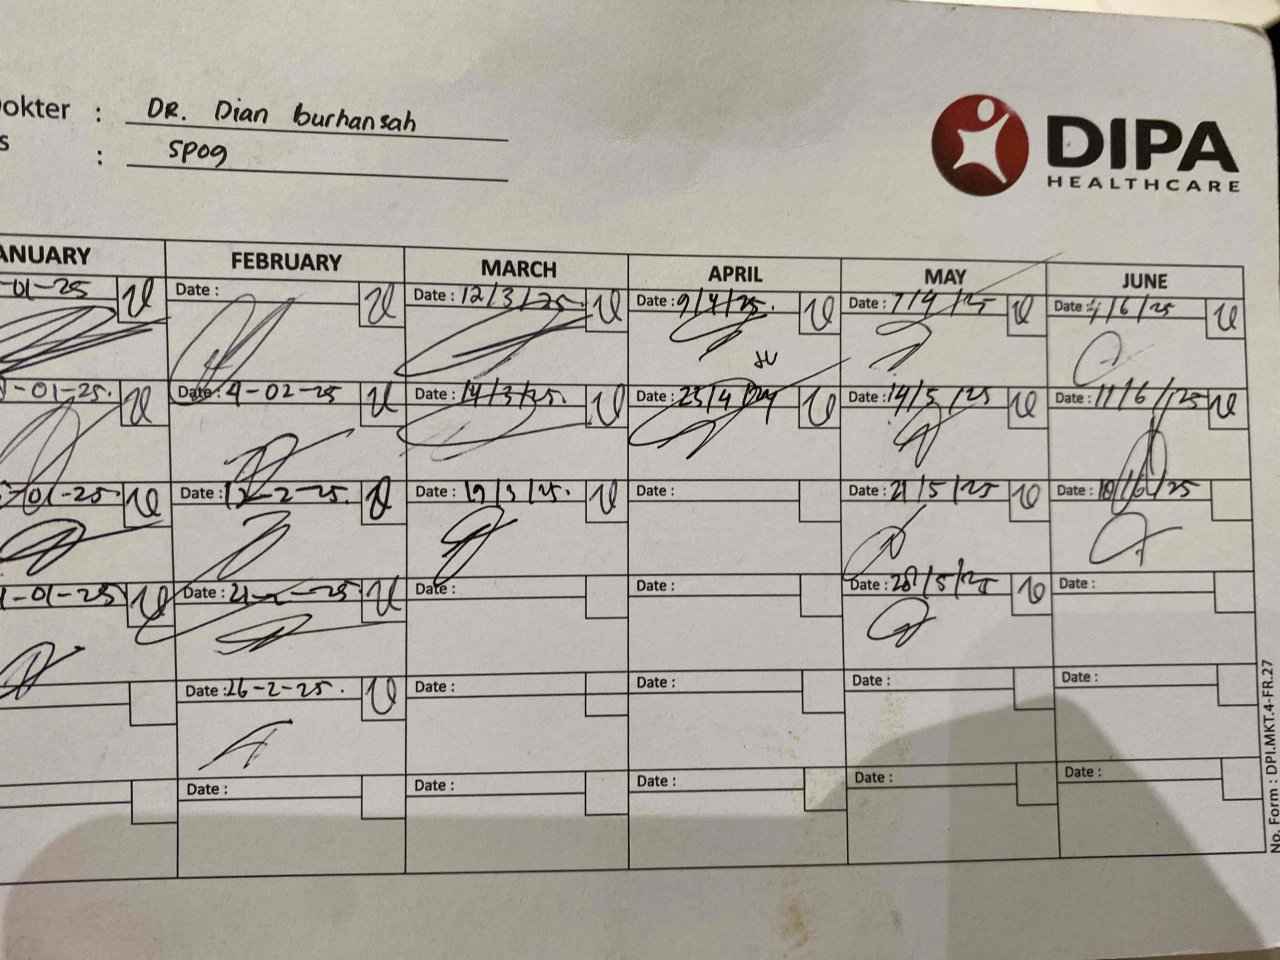 okter : DR. Dian burhansah
s : SPOG
DIPA
HEALTHCARE
ANUARY FEBRUARY MARCH APRIL MAY JUNE
-01-25 Date : Date : 12/3/25. Date : 9/4/25. Date : 7/4/25 Date : 4/6/25
-01-25. Date : 4-02-25 Date : 14/3/25. Date : 23/4/24 Date : 14/5/25 Date : 11/6/25
-01-25. Date : 12-2-25. Date : 19/3/25. Date : Date : 21/5/25 Date : 18/6/25
-01-25 Date : 21-2-25 Date : Date : Date : 28/5/25 Date :
Date : 26-2-25. Date : Date : Date : Date :
Date : Date : Date : Date : Date :
No. Form : DPI.MKT.4-FR.27